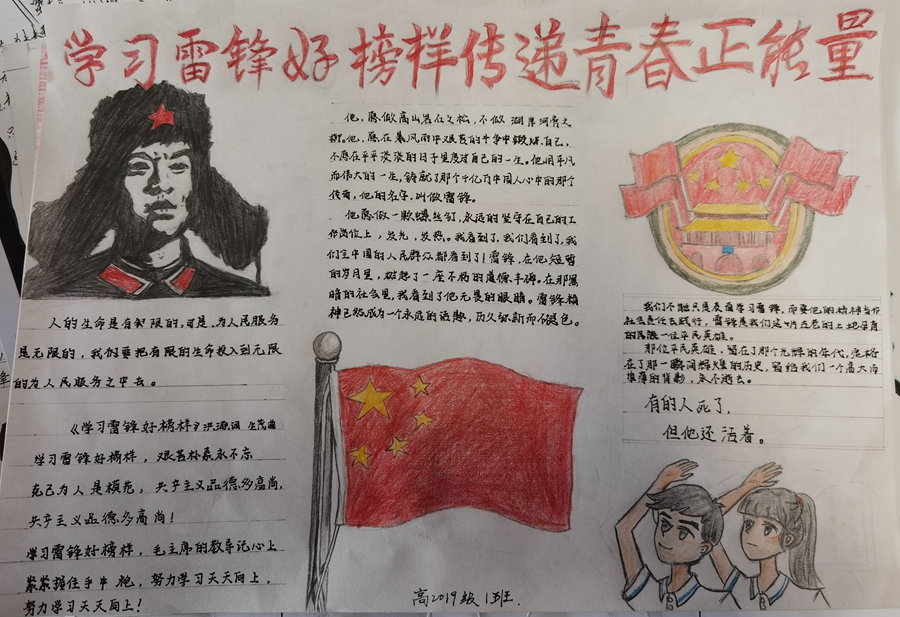 学习雷锋好榜样传递青春正能量
人的生命是有限的,可是,为人民服务
是无限的,我们要把有限的生命投入到无限
的为人民服务之中去。
《学习雷锋好榜样》洪源词 生茂曲
学习雷锋好榜样,艰苦朴素永不忘
克己为人是模范,共产主义品德多高尚,
共产主义品德多高尚!
学习雷锋好榜样,毛主席的教导记心上
紧紧握住手中枪,努力学习天天向上,
努力学习天天向上!
他,愿做高山岩石之松,不做湖岸河旁之
柳。他,愿在暴风雨中艰苦的斗争中锻炼自己,
不愿在平平淡淡的日子里度过自己的一生。他用平凡
而伟大的一生,铸就了那个千亿万中国人心中的那个
传奇,他的名字,叫做雷锋。
他愿做一颗螺丝钉,永远的坚守在自己的工
作岗位上,发光,发热。我看到了,我们看到了,我
们全中国的人民群众都看到了!雷锋,在他短暂
的岁月里,树起了一座不朽的道德丰碑。在那黑
暗的社会里,我看到了他无畏的眼睛。雷锋精
神已然成为一个永远的话题,历久弥新而不褪色。
我们不能只是表面学习雷锋,而要他的精神当作
社会责任去践行,雷锋是我们这
的民族一位平民英雄。
那位平民英雄,留在了那个光辉的年代,定格
在了那一瞬间辉煌的历史,留给我们一个高大而
的背影,永不逝去。
有的人死了,
但他还活着。
高2019级1班.